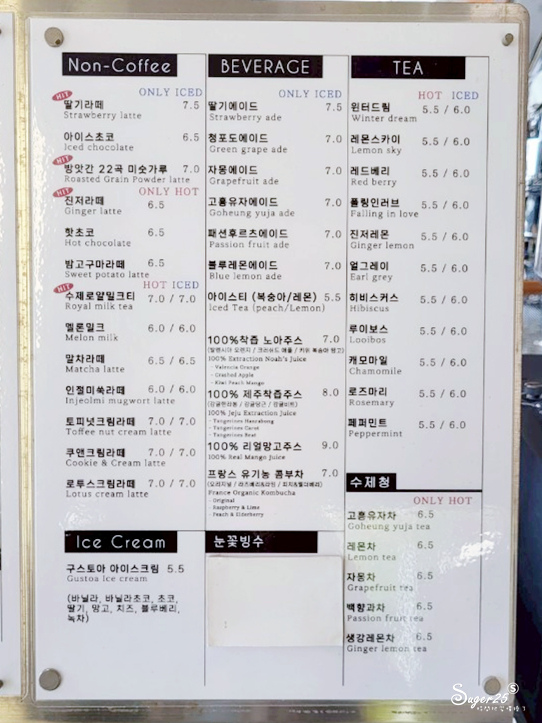 Non-Coffee
ONLY ICED
HIT
딸기라떼 7.5
Strawberry latte
아이스초코 6.5
Iced chocolate
HIT
방앗간 22곡 미숫가루 7.0
Roasted Grain Powder latte
ONLY HOT
HIT
진저라떼 6.5
Ginger latte
핫초코 6.5
Hot chocolate
밤고구마라떼 6.5
Sweet potato latte
HOT ICED
HIT
수제로얄밀크티 7.0 / 7.0
Royal milk tea
멜론밀크 6.0 / 6.0
Melon milk
말차라떼 6.5 / 6.5
Matcha latte
인절미쑥라떼 6.0 / 6.0
Injeolmi mugwort latte
토피넛크림라떼 7.0 / 7.0
Toffee nut cream latte
쿠앤크림라떼 7.0 / 7.0
Cookie & Cream latte
로투스크림라떼 7.0 / 7.0
Lotus cream latte
Ice Cream
구스토아 아이스크림 5.5
Gustoa Ice cream
(바닐라, 바닐라초코, 초코,
딸기, 망고, 치즈, 블루베리,
녹차)
BEVERAGE
ONLY ICED
딸기에이드 7.5
Strawberry ade
청포도에이드 7.0
Green grape ade
자몽에이드 7.0
Grapefruit ade
고흥유자에이드 7.0
Goheung yuja ade
패션후르츠에이드 7.0
Passion fruit ade
블루레몬에이드 7.0
Blue lemon ade
아이스티 (복숭아/레몬) 5.5
Iced Tea (peach/Lemon)
100%착즙 노아주스 7.0
100% Extraction Noah's Juice
- Valencia Orange
- Crushed Apple
- Kiwi Peach Mango
100% 제주착즙주스 8.0
100% Jeju Extraction Juice
- Tangerines Hanrabong
- Tangerines Carot
- Tangerines Beat
100% 리얼망고주스 9.0
100% Real Mango Juice
프랑스 유기농 콤부차 7.0
France Organic Kombucha
- Original
- Raspberry & Lime
- Peach & Elderberry
눈꽃빙수
TEA
HOT ICED
윈터드림 5.5 / 6.0
Winter dream
레몬스카이 5.5 / 6.0
Lemon sky
레드베리 5.5 / 6.0
Red berry
폴링인러브 5.5 / 6.0
Falling in love
진저레몬 5.5 / 6.0
Ginger lemon
얼그레이 5.5 / 6.0
Earl grey
히비스커스 5.5 / 6.0
Hibiscus
루이보스 5.5 / 6.0
Looibos
캐모마일 5.5 / 6.0
Chamomile
로즈마리 5.5 / 6.0
Rosemary
페퍼민트 5.5 / 6.0
Peppermint
수제청
ONLY HOT
고흥유자차 6.5
Goheung yuja tea
레몬차 6.5
Lemon tea
자몽차 6.5
Grapefruit tea
백향과차 6.5
Passion fruit tea
생강레몬차 6.5
Ginger lemon tea
Suger26